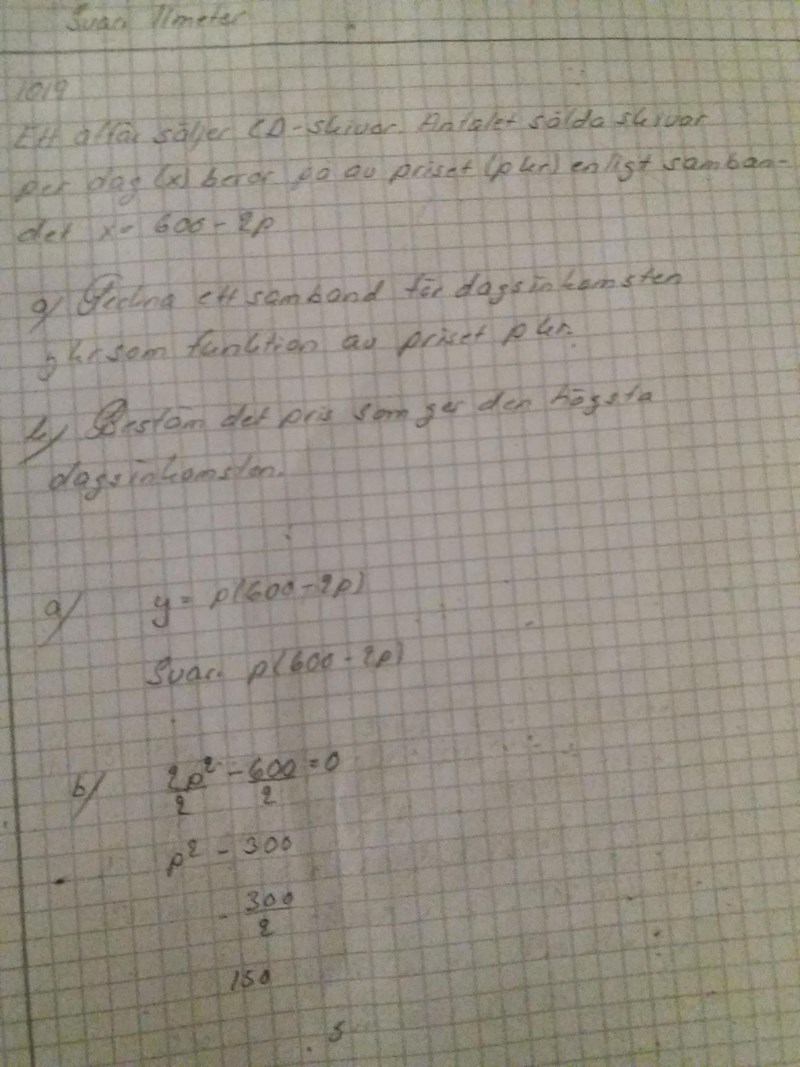 Svar. 11meter
1019
Ett affär säljer CD-skivor. Antalet sålda skivor
per dag (x) beror på av priset (p kr) enligt samban-
det x = 600 - 2p
a) Teckna ett samband för dagsinkomsten
y kr som funktion av priset p kr.
b) Bestäm det pris som ger den högsta
dagsinkomsten.
a) y = p(600 - 2p)
Svar. p(600 - 2p)
b) 2p²/2 - 600/2 = 0
p² - 300
- 300/2
150